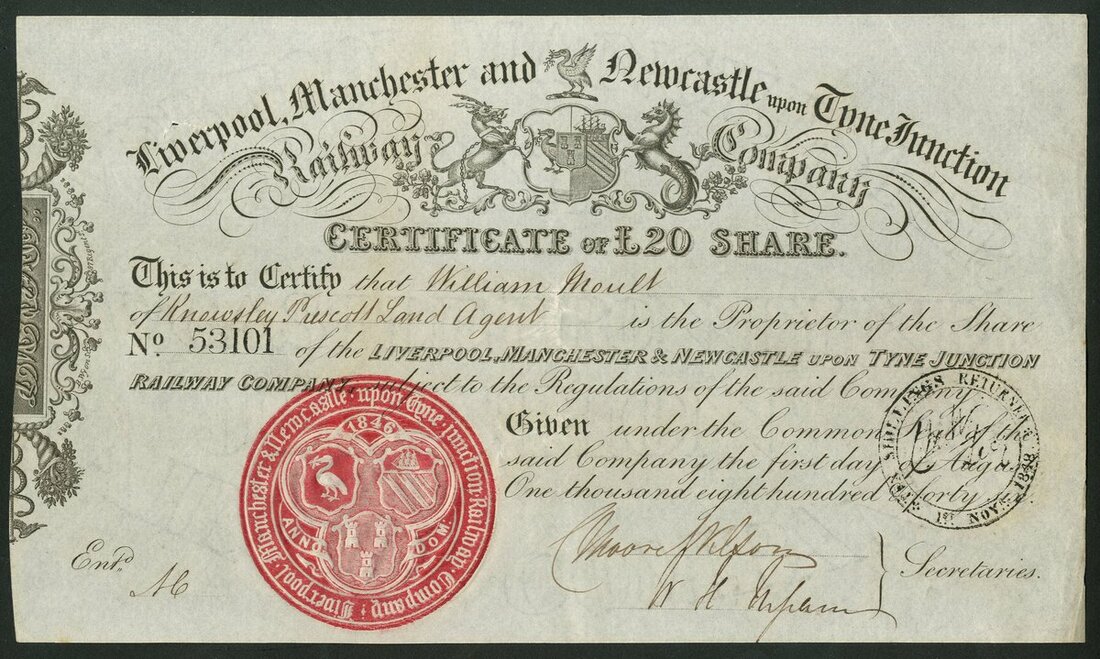 Liverpool, Manchester and Newcastle upon Tyne Junction
Railway Company
CERTIFICATE OF £20 SHARE.
This is to Certify that William Moult
of Knowsley Prescott Land Agent is the Proprietor of the Share
No. 53101 of the LIVERPOOL, MANCHESTER & NEWCASTLE UPON TYNE JUNCTION
RAILWAY COMPANY, subject to the Regulations of the said Company.
Given under the Common Seal of the
said Company the first day of Augu
One thousand eight hundred & forty
Secretaries.
Entd.
M
Liverpool Manchester & Newcastle upon Tyne Junction Railway Company
1846
ANNO DOM.
SHILLINGS RETURNED
1st NOVR 1848